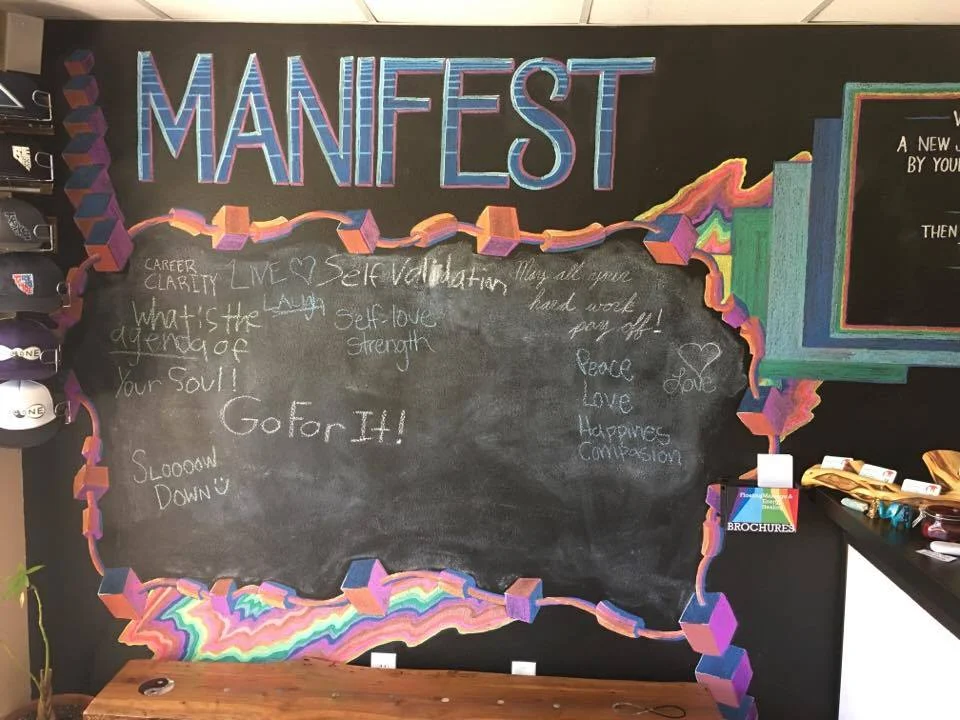 MANIFEST
CAREER
CLARITY
LIVE
LAUGH
Self Validation
Self-love
strength
May all your
hard work
pay off!
What's the
agenda of
Your Soul!
Go For It!
SLOOOOW
DOWN
Peace
Love
Happines
Compasion
Love
A NEW
BY YOU
THEN
BROCHURES